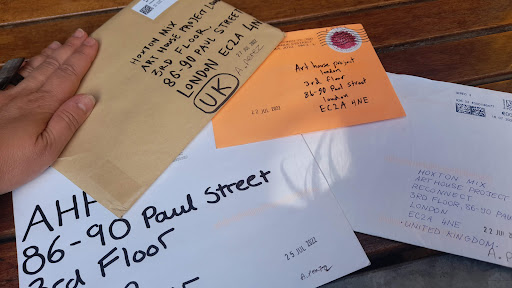 HOXTON MIX
ART HOUSE PROJECT
3RD FLOOR,
86-90 PAUL STREET
LONDON EC2A 4NE
UK
Art house project
london
3rd floor
86-90 Paul Street
london
EC2A 4NE
22 JUL 2022
HOXTON MIX
ART HOUSE PROJECT
RECONNECT
3RD FLOOR, 86-90 PAUL
LONDON
EC2A 4NE
UNITED KINGDOM
22 JUL 2022
AHP
86-90 Paul Street
3rd Floor
25 JUL 2022